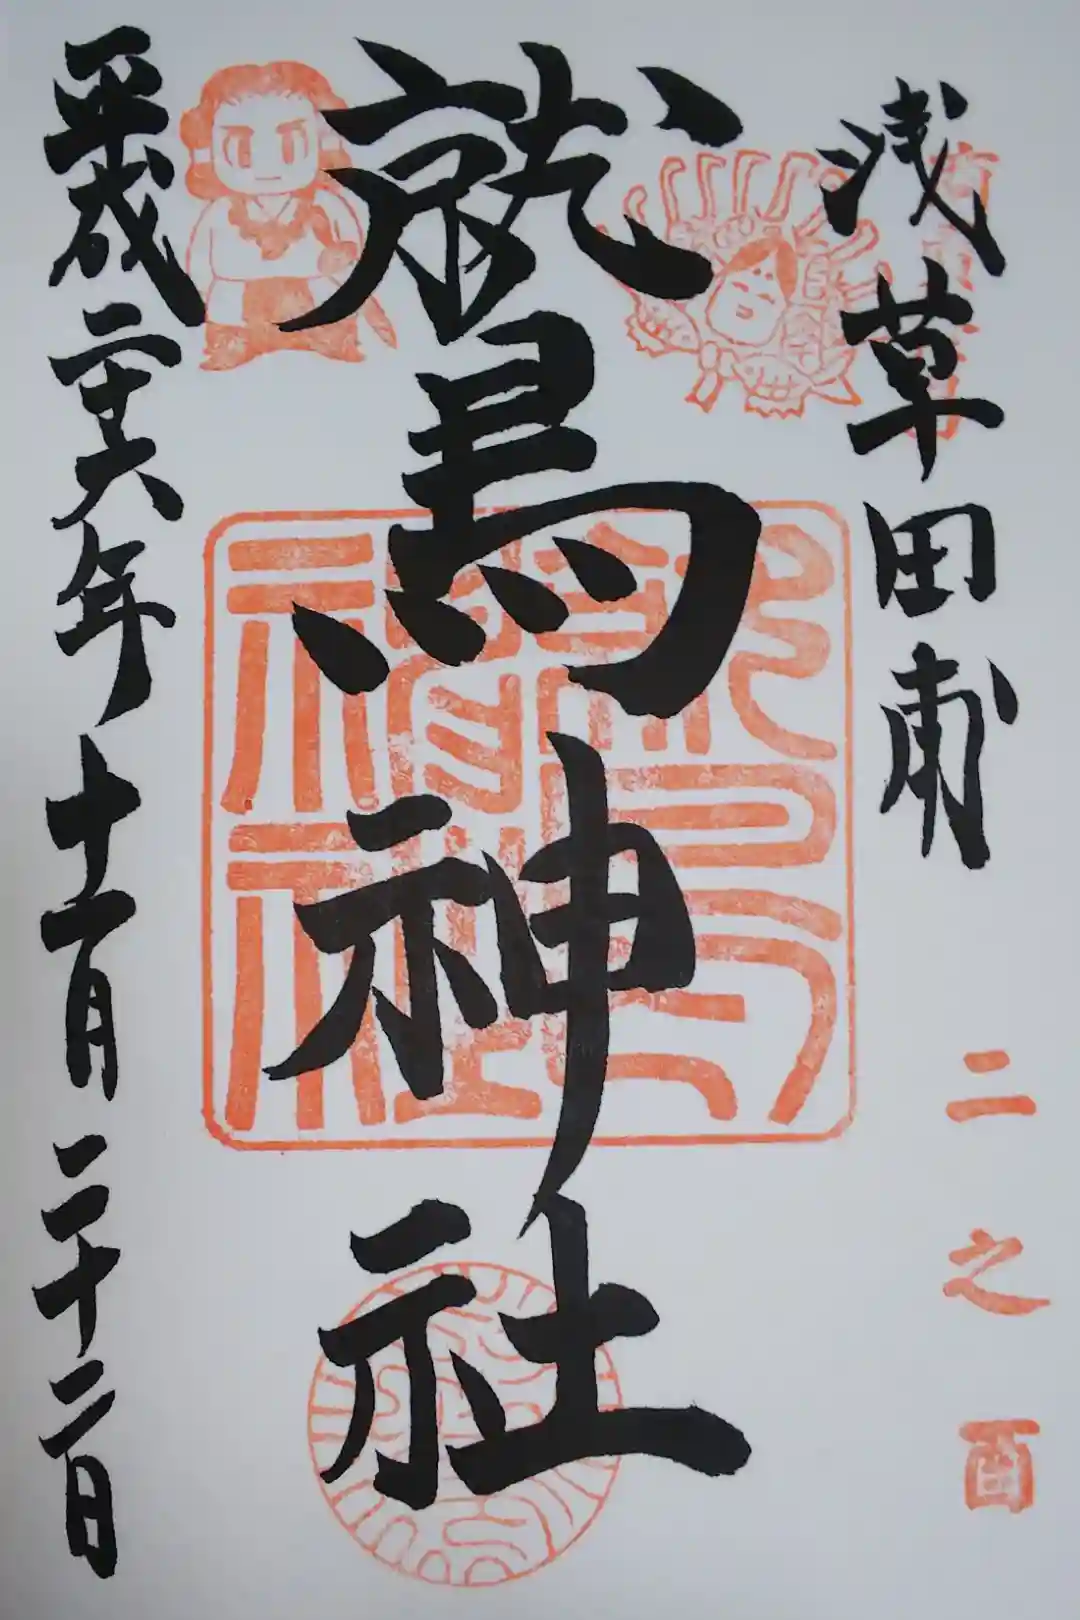 浅草田甫
二之酉
鷲神社
鷲神社
平成二十六年十一月二十二日